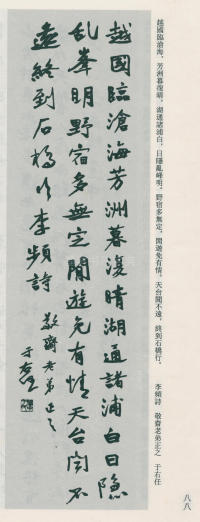 越國臨滄海，芳洲暮復晴，湖通諸浦白，日隱亂峰明，野宿多無定，閒遊免有情，天台聞不遠，終到石橋行。　李頻詩　敬齋老弟正之　于右任
八八
越國臨滄海芳洲暮復晴湖通諸浦白日隱
乱峯明野宿多無定閒遊免有情天台聞不
遠終到石橋行李頻詩　敬齋老弟正之
于右任